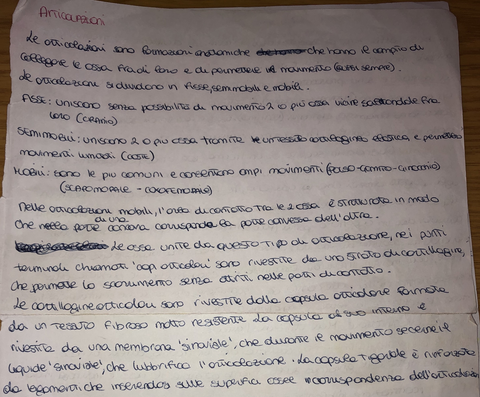 Articolazioni
Le articolazioni sono formazioni anatomiche che hanno il compito di
collegare le ossa fra di loro e di permettere il movimento (quasi sempre).
Le articolazioni si dividono in fisse, semimobili e mobili.
Fisse: uniscono senza possibilità di movimento 2 o più ossa vicine saldandole fra
loro (cranio)
Semimobili: uniscono 2 o più ossa tramite un tessuto cartilagineo elastico, e permettono
movimenti limitati (coste)
Mobili: sono le più comuni e consentono ampi movimenti (polso-gomito-ginocchio)
(scapomerale - coxofemorale)
Nelle articolazioni mobili, l'area di contatto tra le 2 ossa è strutturata in modo
che nella parte concava di una corrisponda la parte convessa dell'altra.
Le ossa unite da questo tipo di articolazione, nei punti
terminali chiamati 'capi articolari' sono rivestite da uno strato di cartilagine,
che permette lo scorrimento senza attriti nelle parti di contatto.
Le cartilagine articolari sono rivestite dalla capsula articolare formata
da un tessuto fibroso molto resistente. La capsula al suo interno è
rivestita da una membrana 'sinoviale', che durante il movimento secerne il
liquido 'sinoviale', che lubrifica l'articolazione. La capsula è rinforzata
da legamenti che inserendosi sulle superfici ossee in corrispondenza dell'articolazione